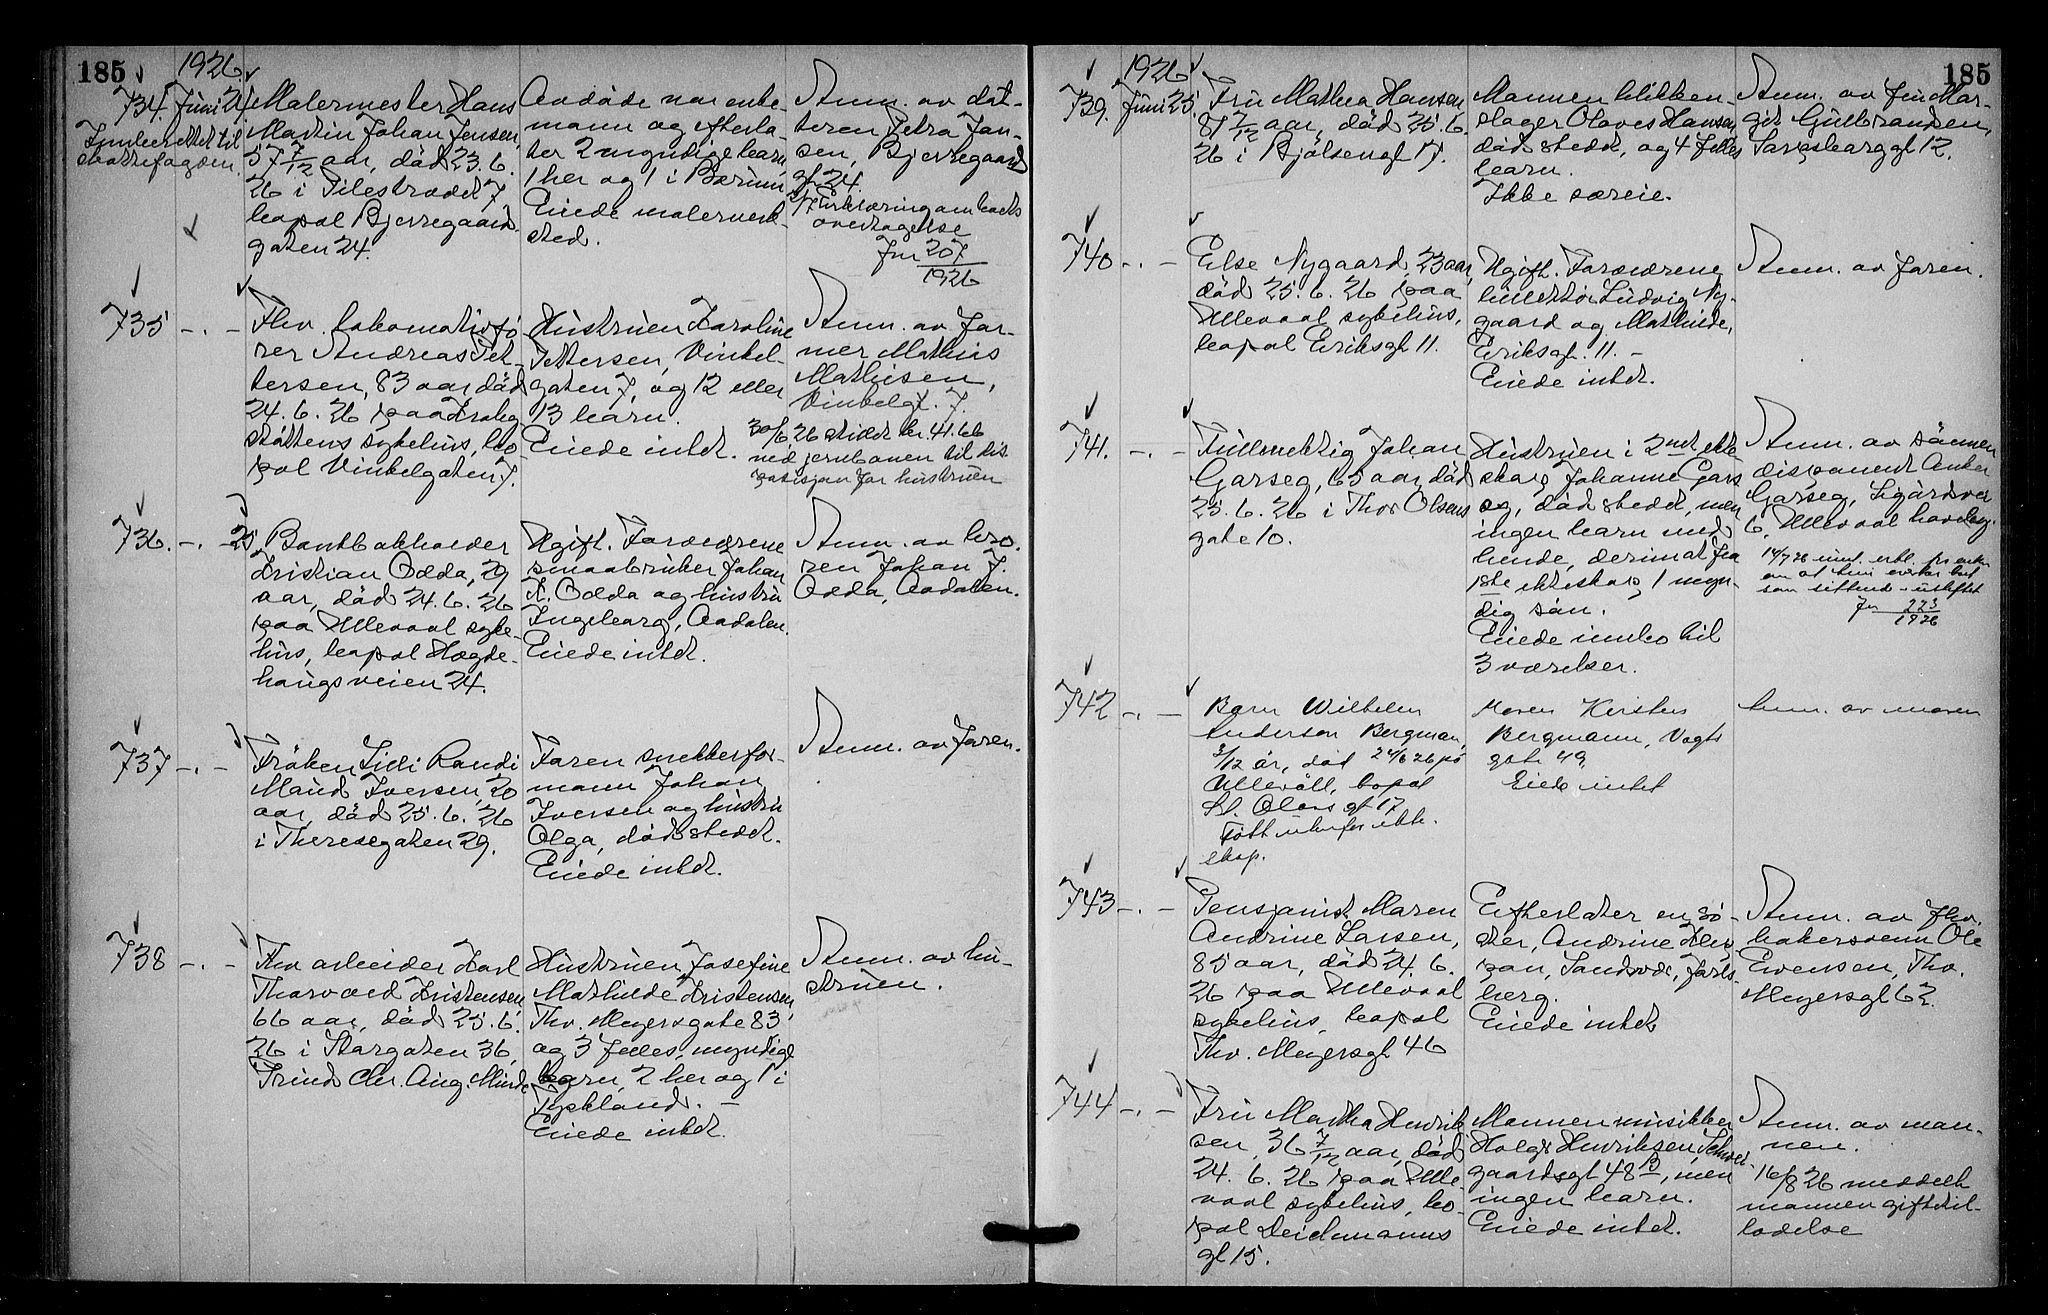 185
1926
734. Juni 24
Malermester Hans
Martin Johan Jensen,
57 7/12 aar, død 23.6.
26 i Pilestrædet 7,
bopæl Bjerregaards
gaten 24.
Avdøde var enke-
mann og efterla-
ter 2 myndige barn,
1 her og 1 i Bærum,
Eiede malerverk-
sted.
Anm. av dat-
teren Petra Jan-
sen, Bjerregaards
gt 24.
overtagelse
Jnr 207
1926
735 -.-
Fhv. lokomotivfø-
rer Andreas Pet-
tersen, 83 aar, død
24.6.26 paa Krohg-
støttens sykehus, bo-
pæl Vinkelgaten 7.
Hustruen Karoline
Pettersen, Vinkel-
gaten 7, og 12 eller
13 barn.
Eiede intet.
Anm. av
Mathisen,
Vinkelgt. 7.
30/6 26 kr. 41.66
ved jernbanen til dis-
posisjon for hustruen
736. -.- 25
Bankbokholder
Kristian Odda, 29
aar, død 24.6.26
paa Ullevaal syke-
hus, bopæl Hægde-
haugsveien 24.
Ugift. Forældrene
smaabruker Johan
K. Odda og hustru
Ingeborg, Aadalen.
Eiede intet.
Anm. av bro-
ren Johan J.
Odda, Aadalen.
737 -.-
Frøken Lilli Randi
Maud Iversen, 20
aar, død 25.6.26
i Theresegaten 29.
Faren snekkerfor-
mann Johan
Iversen og hustru
Olga, død stedet.
Eiede intet.
Anm. av faren.
738 -.-
Fhv arbeider Karl
Thorvald Kristensen
66 aar, død 25.6.
26 i Storgaten 36,
Hustruen Josefine
Mathilde Kristensen,
Thv. Meyersgate 83,
og 3 felles, myndige
barn, 2 her og 1 i
Tyskland. -
Eiede intet.
Anm. av hu-
struen.
185
1926
739. Juni 25.
Fru Mathea Hansen,
26 i Bjølsengt 17.
Mannen blikken-
slager Olaves Hansen
død stedet, og 4 felles
barn.
Ikke særeie.
Anm. av fru Mar-
git Gulbrandsen,
Sarpsborggt 12.
740 -.-
Else Nygaard, 23 aar,
død 25.6.26 paa
Ullevaal sykehus,
bopæl Eriksgt 11.
Ugift. Forældrene
Ludvig Ny-
gaard og Mathilde,
Eriksgt. 11. -
Eiede intet.
Anm. av faren.
741. -.-
Fullmektig Johan
Garseg, 65 aar, død
25.6.26 i Thor Olsens
gate 10.
Hustruen i 2net ekte
skap, Johanne Gars
eg, død stedet, men
ingen barn med
hende, derimot fra
1ste ekteskap, 1 myn-
dig søn.
Eiede innbo til
3 værelser.
Anm. av sønnen
disponent Anker
Garseg, Sigurdsvei
6, Ullevaal haveby.
Jnr 223
1926
742 -.-
Barn Wilhelm
Anderson Bergman,
3/12 år, død 24/6 26 på
Ullevål, bopæl
St. Olavs gt 17
Født utenfor ekte-
skap.
Moren Kirsten
Bergmann, Vogts
gate 49,
Eiede intet
Anm. av moren
743 -.-
Pensjonist Maren
Andrine Larsen,
85 aar, død 24.6.
26 paa Ullevaal
sykehus, bopæl
Thv. Meyersgt 46
Efterlater en sø-
ster, Andrine
Jarls-
berg.
Eiede intet
Anm. av fhv.
bakersvenn Ole
Evensen, Thv.
Meyersgt 62.
744 -.-
Fru Martha Henrik
sen, 36 7/12 aar, død
24.6.26 paa Ulle-
vaal sykehus, bo-
pæl Deichmanns
gt 15.
Mannen musikker
Holger Henriksen, Schwei-
gaardsgt 48 B, men
ingen barn.
Eiede intet.
Anm. av man-
nen.
16/8 26 meddelt
mannen giftetil-
ladelse